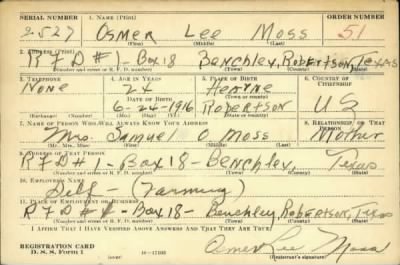 SERIAL NUMBER 1. NAME (Print) ORDER NUMBER
2527 OSMER LEE MOSS 51
(First) (Middle) (Last)
2. ADDRESS (Print)
R F D #1-Box 18 Benchley, Robertson, Texas
(Number and street or R. F. D. number) (Town) (County) (State)
3. TELEPHONE 4. AGE IN YEARS 5. PLACE OF BIRTH 6. COUNTRY OF CITIZENSHIP
None 24 Hearne
DATE OF BIRTH (Town or county)
6-24-1916 Robertson U S
(Exchange) (Number) (Mo.) (Day) (Yr.) (State or country)
7. NAME OF PERSON WHO WILL ALWAYS KNOW YOUR ADDRESS 8. RELATIONSHIP OF THAT PERSON
Mrs. Samuel O Moss Mother
(Mr., Mrs., Miss) (First) (Middle) (Last)
9. ADDRESS OF THAT PERSON
R F D #1-Box 18- Benchley, Texas
(Number and street or R. F. D. number) (Town) (County) (State)
10. EMPLOYER'S NAME
Self - (Farming)
11. PLACE OF EMPLOYMENT OR BUSINESS
R F D #1-Box 18- Benchley, Robertson, Texas
(Number and street or R. F. D. number) (Town) (County) (State)
I AFFIRM THAT I HAVE VERIFIED ABOVE ANSWERS AND THAT THEY ARE TRUE.
Osmer Lee Moss
REGISTRATION CARD
D. S. S. Form 1 (over) (Registrant's signature)